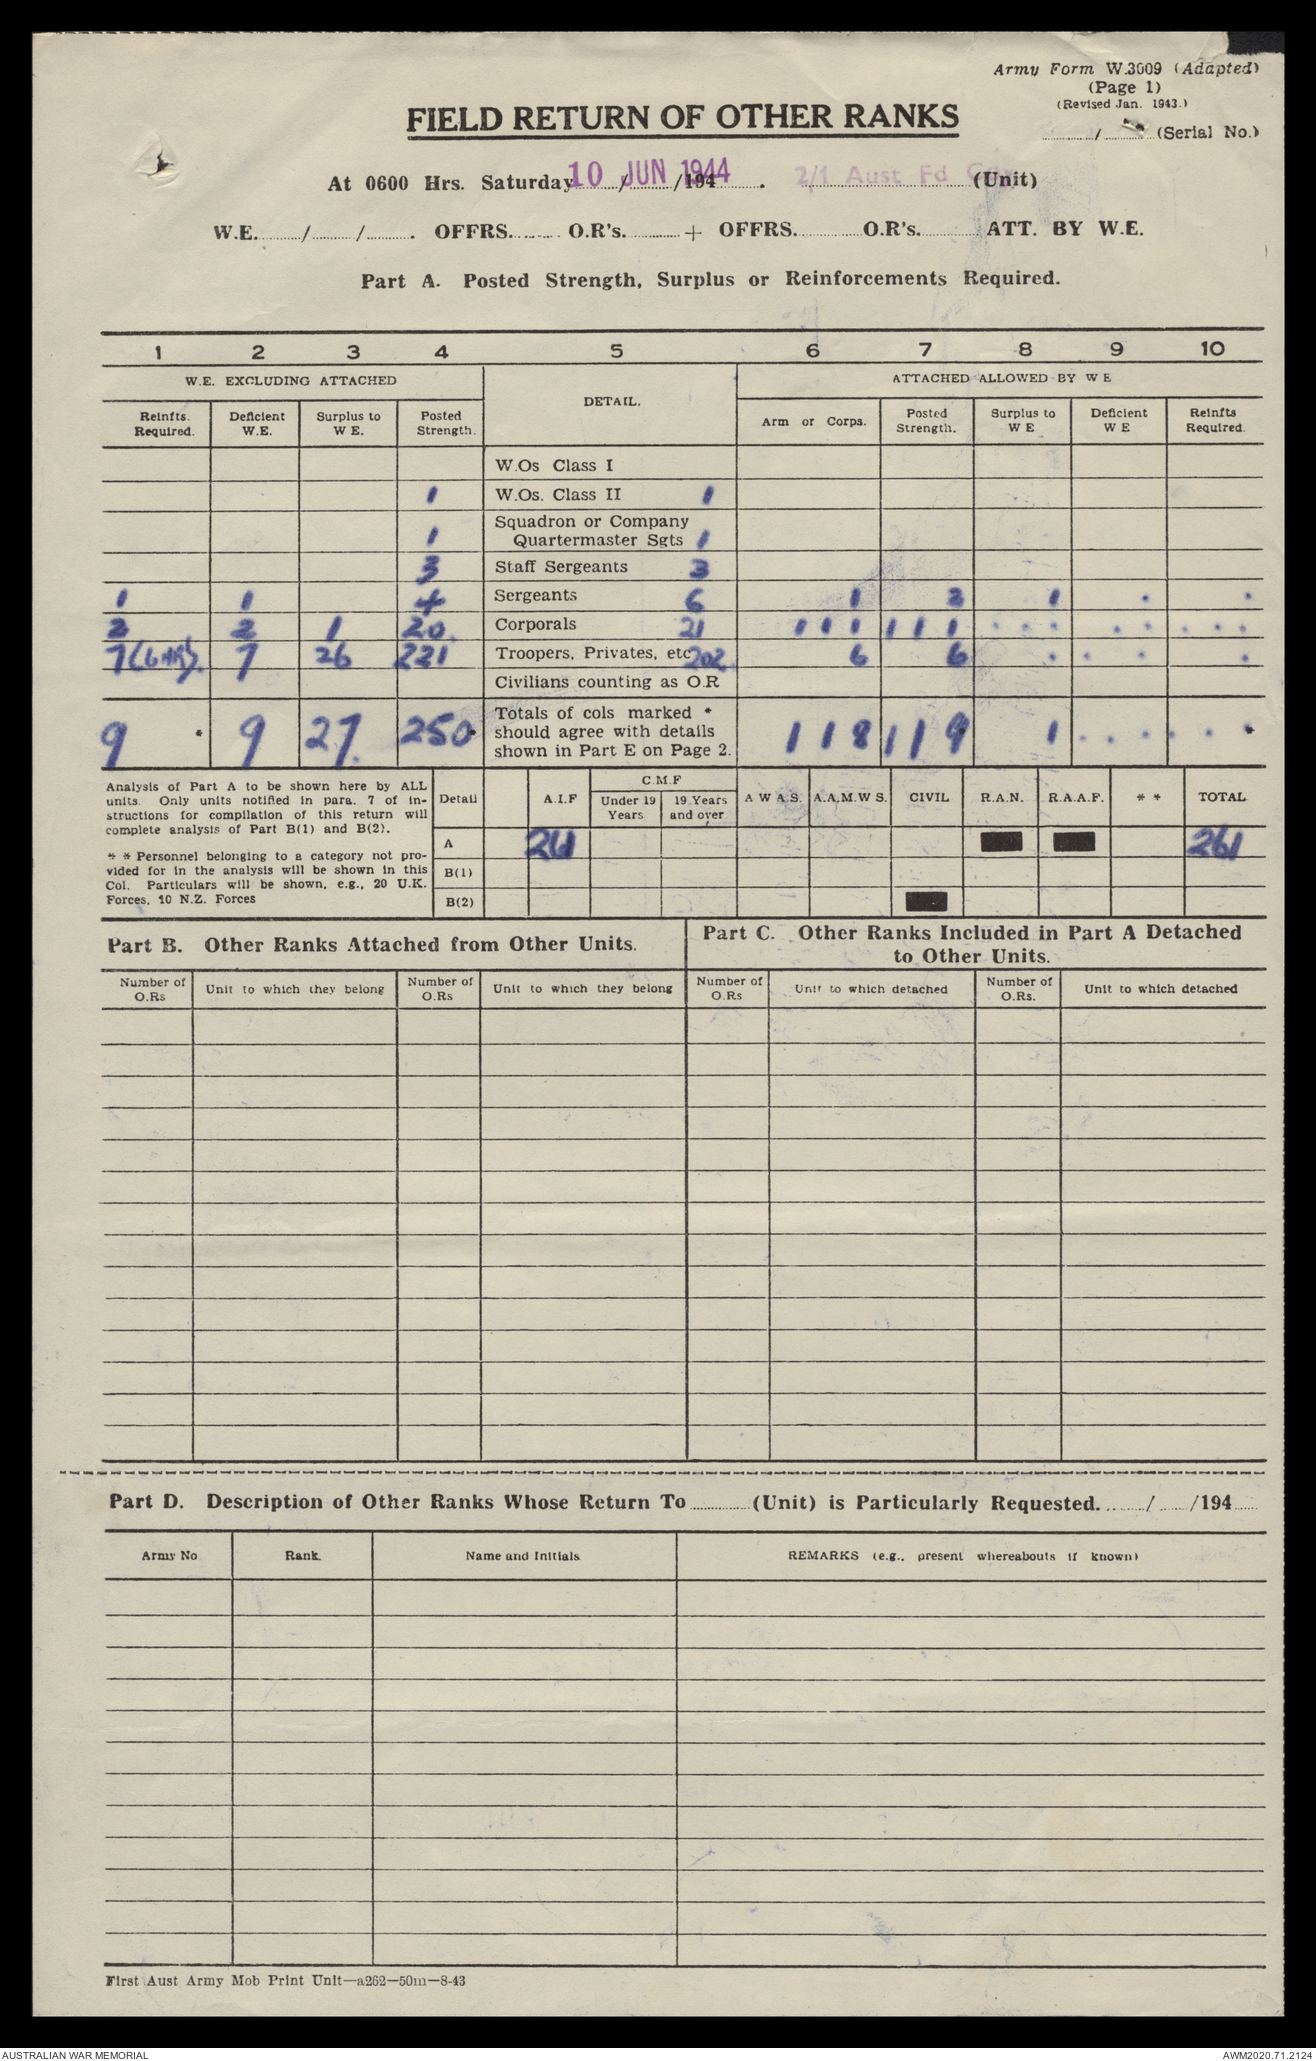 Army Form W.3009 (Adapted)
(Page 1)
(Revised Jan. 1943.)
FIELD RETURN OF OTHER RANKS
/ (Serial No.)
At 0600 Hrs. Saturday 10 JUN 1944 / /194 . 2/1 Aust Fd (Unit)
W.E. / / . OFFRS. O.R's. + OFFRS. O.R's. ATT. BY W.E.
Part A. Posted Strength, Surplus or Reinforcements Required.
1 2 3 4 5 6 7 8 9 10
W.E. EXCLUDING ATTACHED DETAIL. ATTACHED ALLOWED BY W E
Reinfts. Required. Deficient W.E. Surplus to W E. Posted Strength. Arm or Corps. Posted Strength. Surplus to W E Deficient W E Reinfts Required.
W.Os Class I
1 W.Os. Class II 1
1 Squadron or Company Quartermaster Sgts 1
3 Staff Sergeants 3
1 1 4 Sergeants 6 1 2 1 . .
2 2 1 20 Corporals 21 1 1 1 1 1 1 . . . . . . . . .
7 7 26 221 Troopers, Privates, etc 202 6 6 . . . .
Civilians counting as O.R
9 * 9 27 250 * Totals of cols marked * should agree with details shown in Part E on Page 2. 1 1 8 1 1 9 1 . . . . . *
Analysis of Part A to be shown here by ALL
units. Only units notified in para. 7 of in-
structions for compilation of this return will
complete analysis of Part B(1) and B(2).
* * Personnel belonging to a category not pro-
vided for in the analysis will be shown in this
Col. Particulars will be shown, e.g., 20 U.K.
Forces, 10 N.Z. Forces
Detail A.I.F C.M.F Under 19 Years 19 Years and over A W A.S. A.A.M.W S. CIVIL R.A.N. R.A.A.F. * * TOTAL
A 261 261
B(1)
B(2)
Part B. Other Ranks Attached from Other Units.
Number of O.Rs Unit to which they belong Number of O.Rs Unit to which they belong
Part C. Other Ranks Included in Part A Detached
to Other Units.
Number of O.Rs Unit to which detached Number of O.Rs. Unit to which detached
Part D. Description of Other Ranks Whose Return To (Unit) is Particularly Requested. / /194
Army No Rank. Name and Initials REMARKS (e.g., present whereabouts if known)
First Aust Army Mob Print Unit—a262—50m—8-43
AUSTRALIAN WAR MEMORIAL AWM2020.71.2124